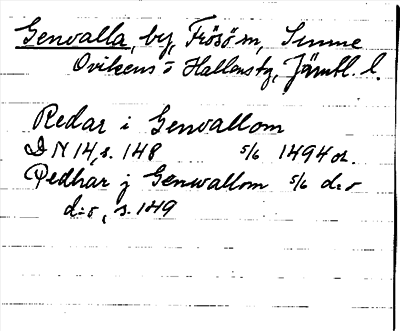 Genvalla, by, Frösö sn, Sunne
Ovikens o Hallens tg, Jämtl. l.
Redar i Genvallom
D N 14, s. 148 5/6 1494 or.
Pedhar j Genwallom 5/6 d:o
d:o, s. 149